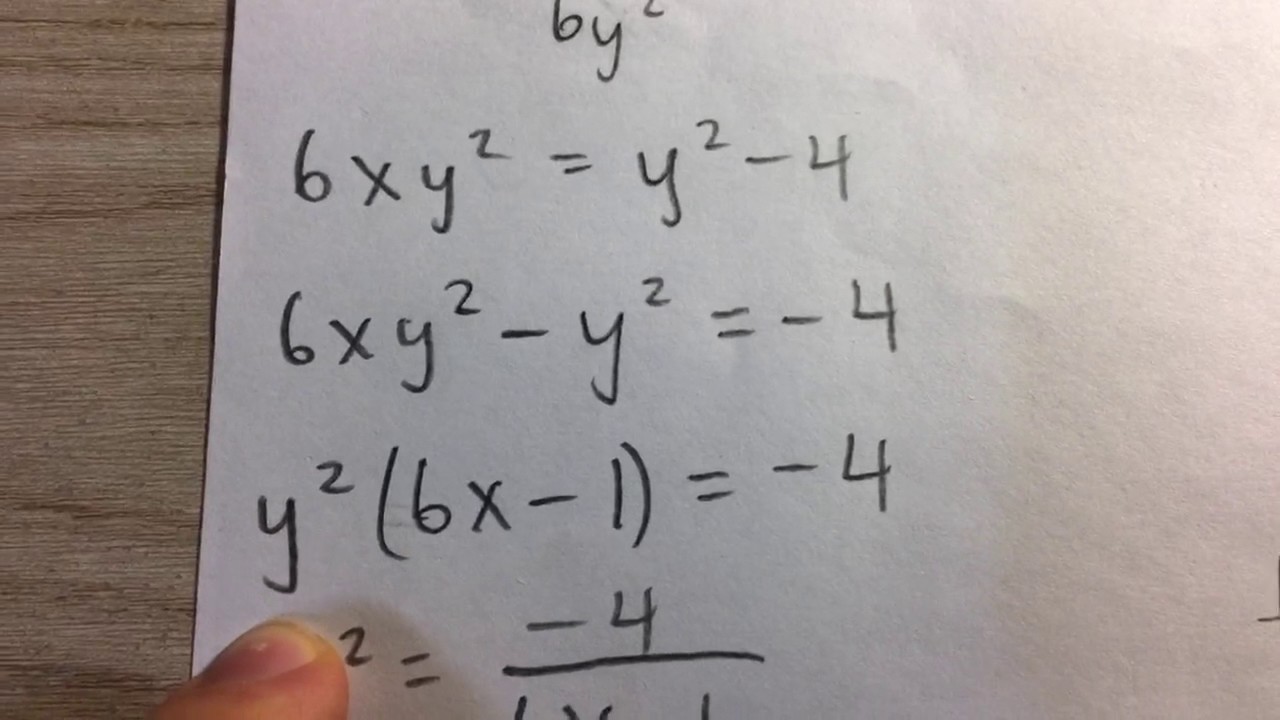 6y²
6xy² = y² - 4
6xy² - y² = - 4
y²(6x - 1) = - 4
² = - 4